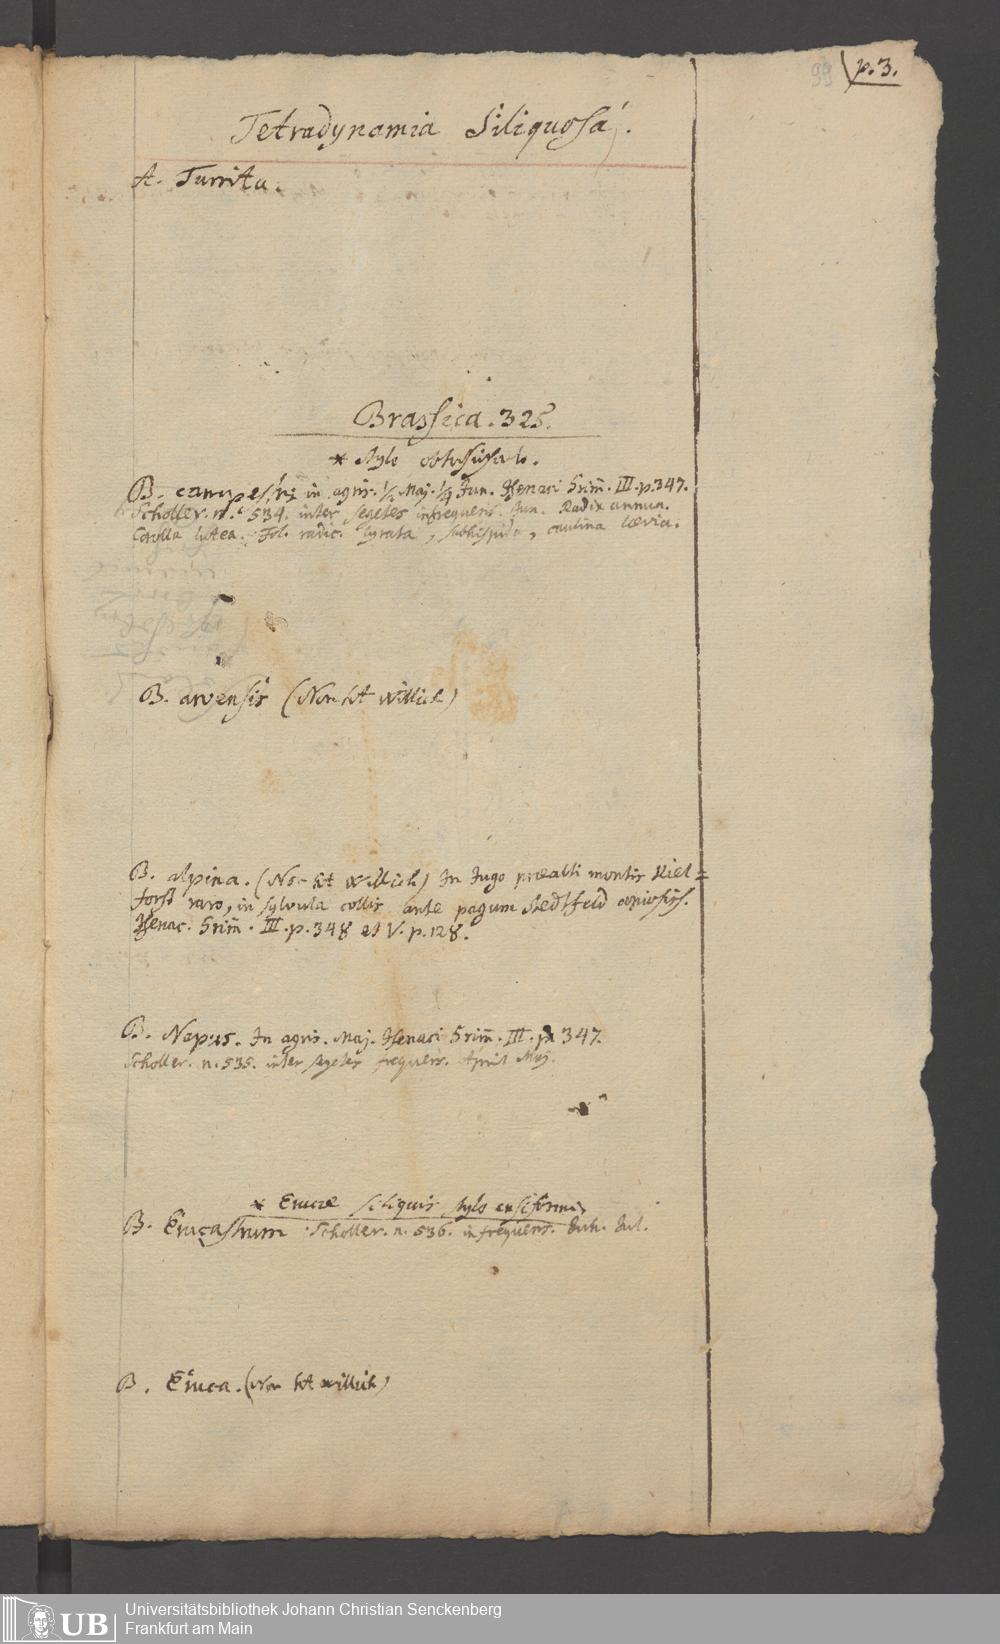 99 p. 3.
Tetradynamia Siliquosa.
A. Turrita.
Brassica. 325.
* stylo obtusiusculo.
B. campestris in agris. ½ Maj. ¼ Jun. Isenaci Grim. III. p. 347.
Scholler. n. 534. inter segetes infrequens. Jun. Radix annua.
Corolla lutea. Fol. radic. lyrata, subhispida, caulina laevia.
B. arvensis (Non hat Willich)
B. alpina. (Non hat Willich) In Jugo praealti montis Kiel=
forst raro, in sylvula collis ante pagum Stedtfeld copiosiss.
Isenac. Grim. III. p. 348 et V. p. 128.
B. Napus. In agris. Maj. Isenaci Grim. III. p. 347.
Scholler. n. 535. inter segetes frequens. April Maj.
* Erucae siliquis stylo ensiformi
B. Erucastrum. Scholler. n. 536. infrequens. Jun. Jul.
B. Eruca. (Non hat Willich)
UB Universitätsbibliothek Johann Christian Senckenberg
Frankfurt am Main